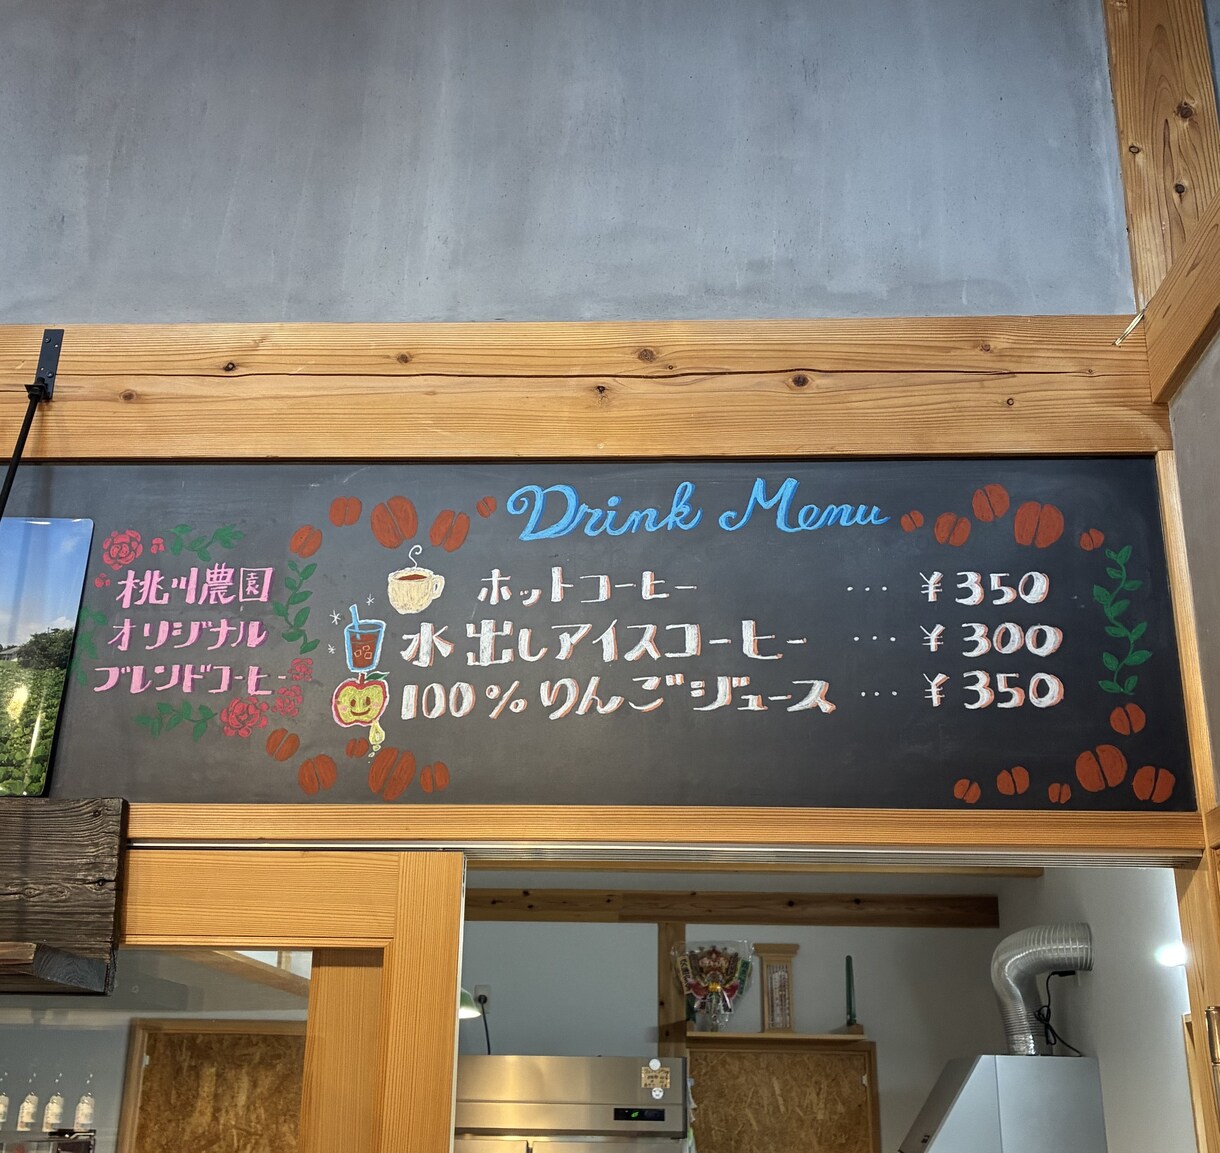 Drink Menu
桃川農園
オリジナル
ブレンドコーヒー
ホットコーヒー ... ¥350
水出しアイスコーヒー ... ¥300
100%りんごジュース ... ¥350